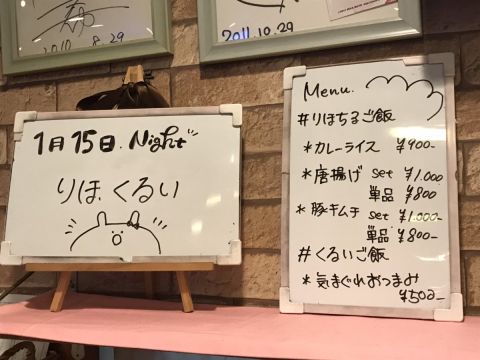 2010.8.29
2011.10.29
1月15日. Night
りほ くるい
Menu.
#りほちるご飯
*カレーライス ¥900-
*唐揚げ set ¥1.000
単品 ¥800
*豚キムチ set ¥1.000-
単品 ¥800-
#くるいご飯
*気まぐれおつまみ
¥500-